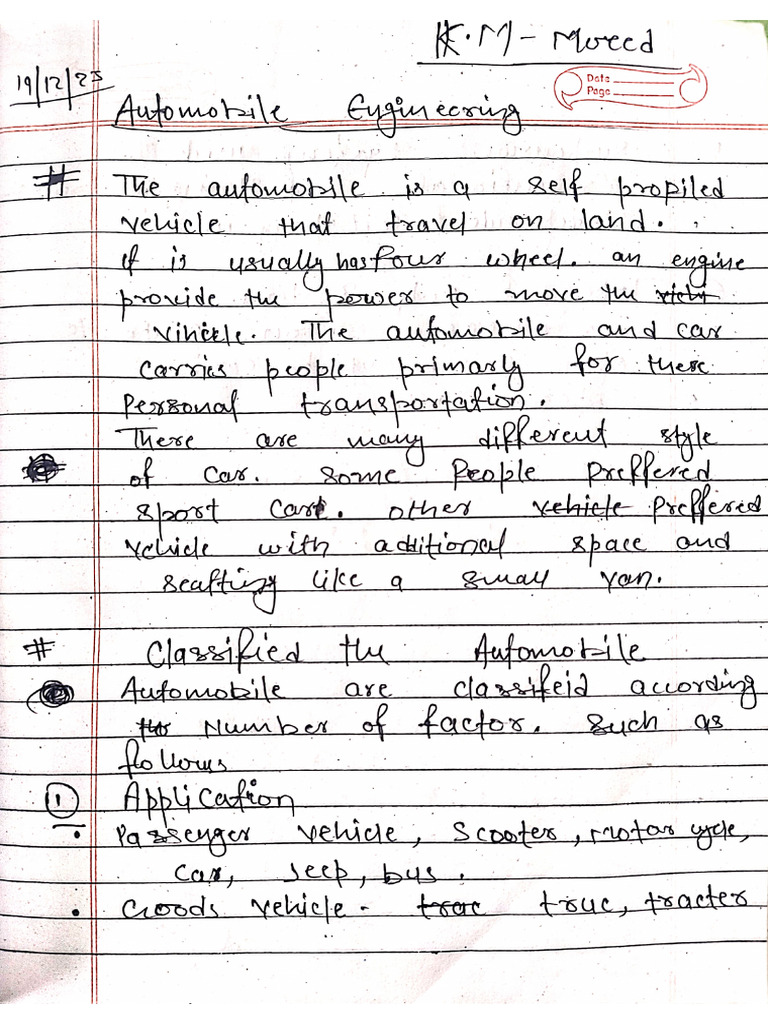 K.M - Moeed
19/12/23
Date
Page
Automobile Engineering
# The automobile is a self propiled
vehicle that travel on land.
if is usually has four wheel. an engine
provide the power to move the
vihicle. The automobile and car
carries people primarly for there
Personal transportation.
There are many different style
of car. some People preffered
sport car. other vehicle preffered
vehicle with additional space and
seafting like a small van.
# Classified the Automobile
Automobile are classifeid according
Number of factor. Such as
follows
① Application
• Passenger vehicle, Scooter, Motor cycle,
Car, Jeep, bus.
• Goods vehicle - truc, tracter